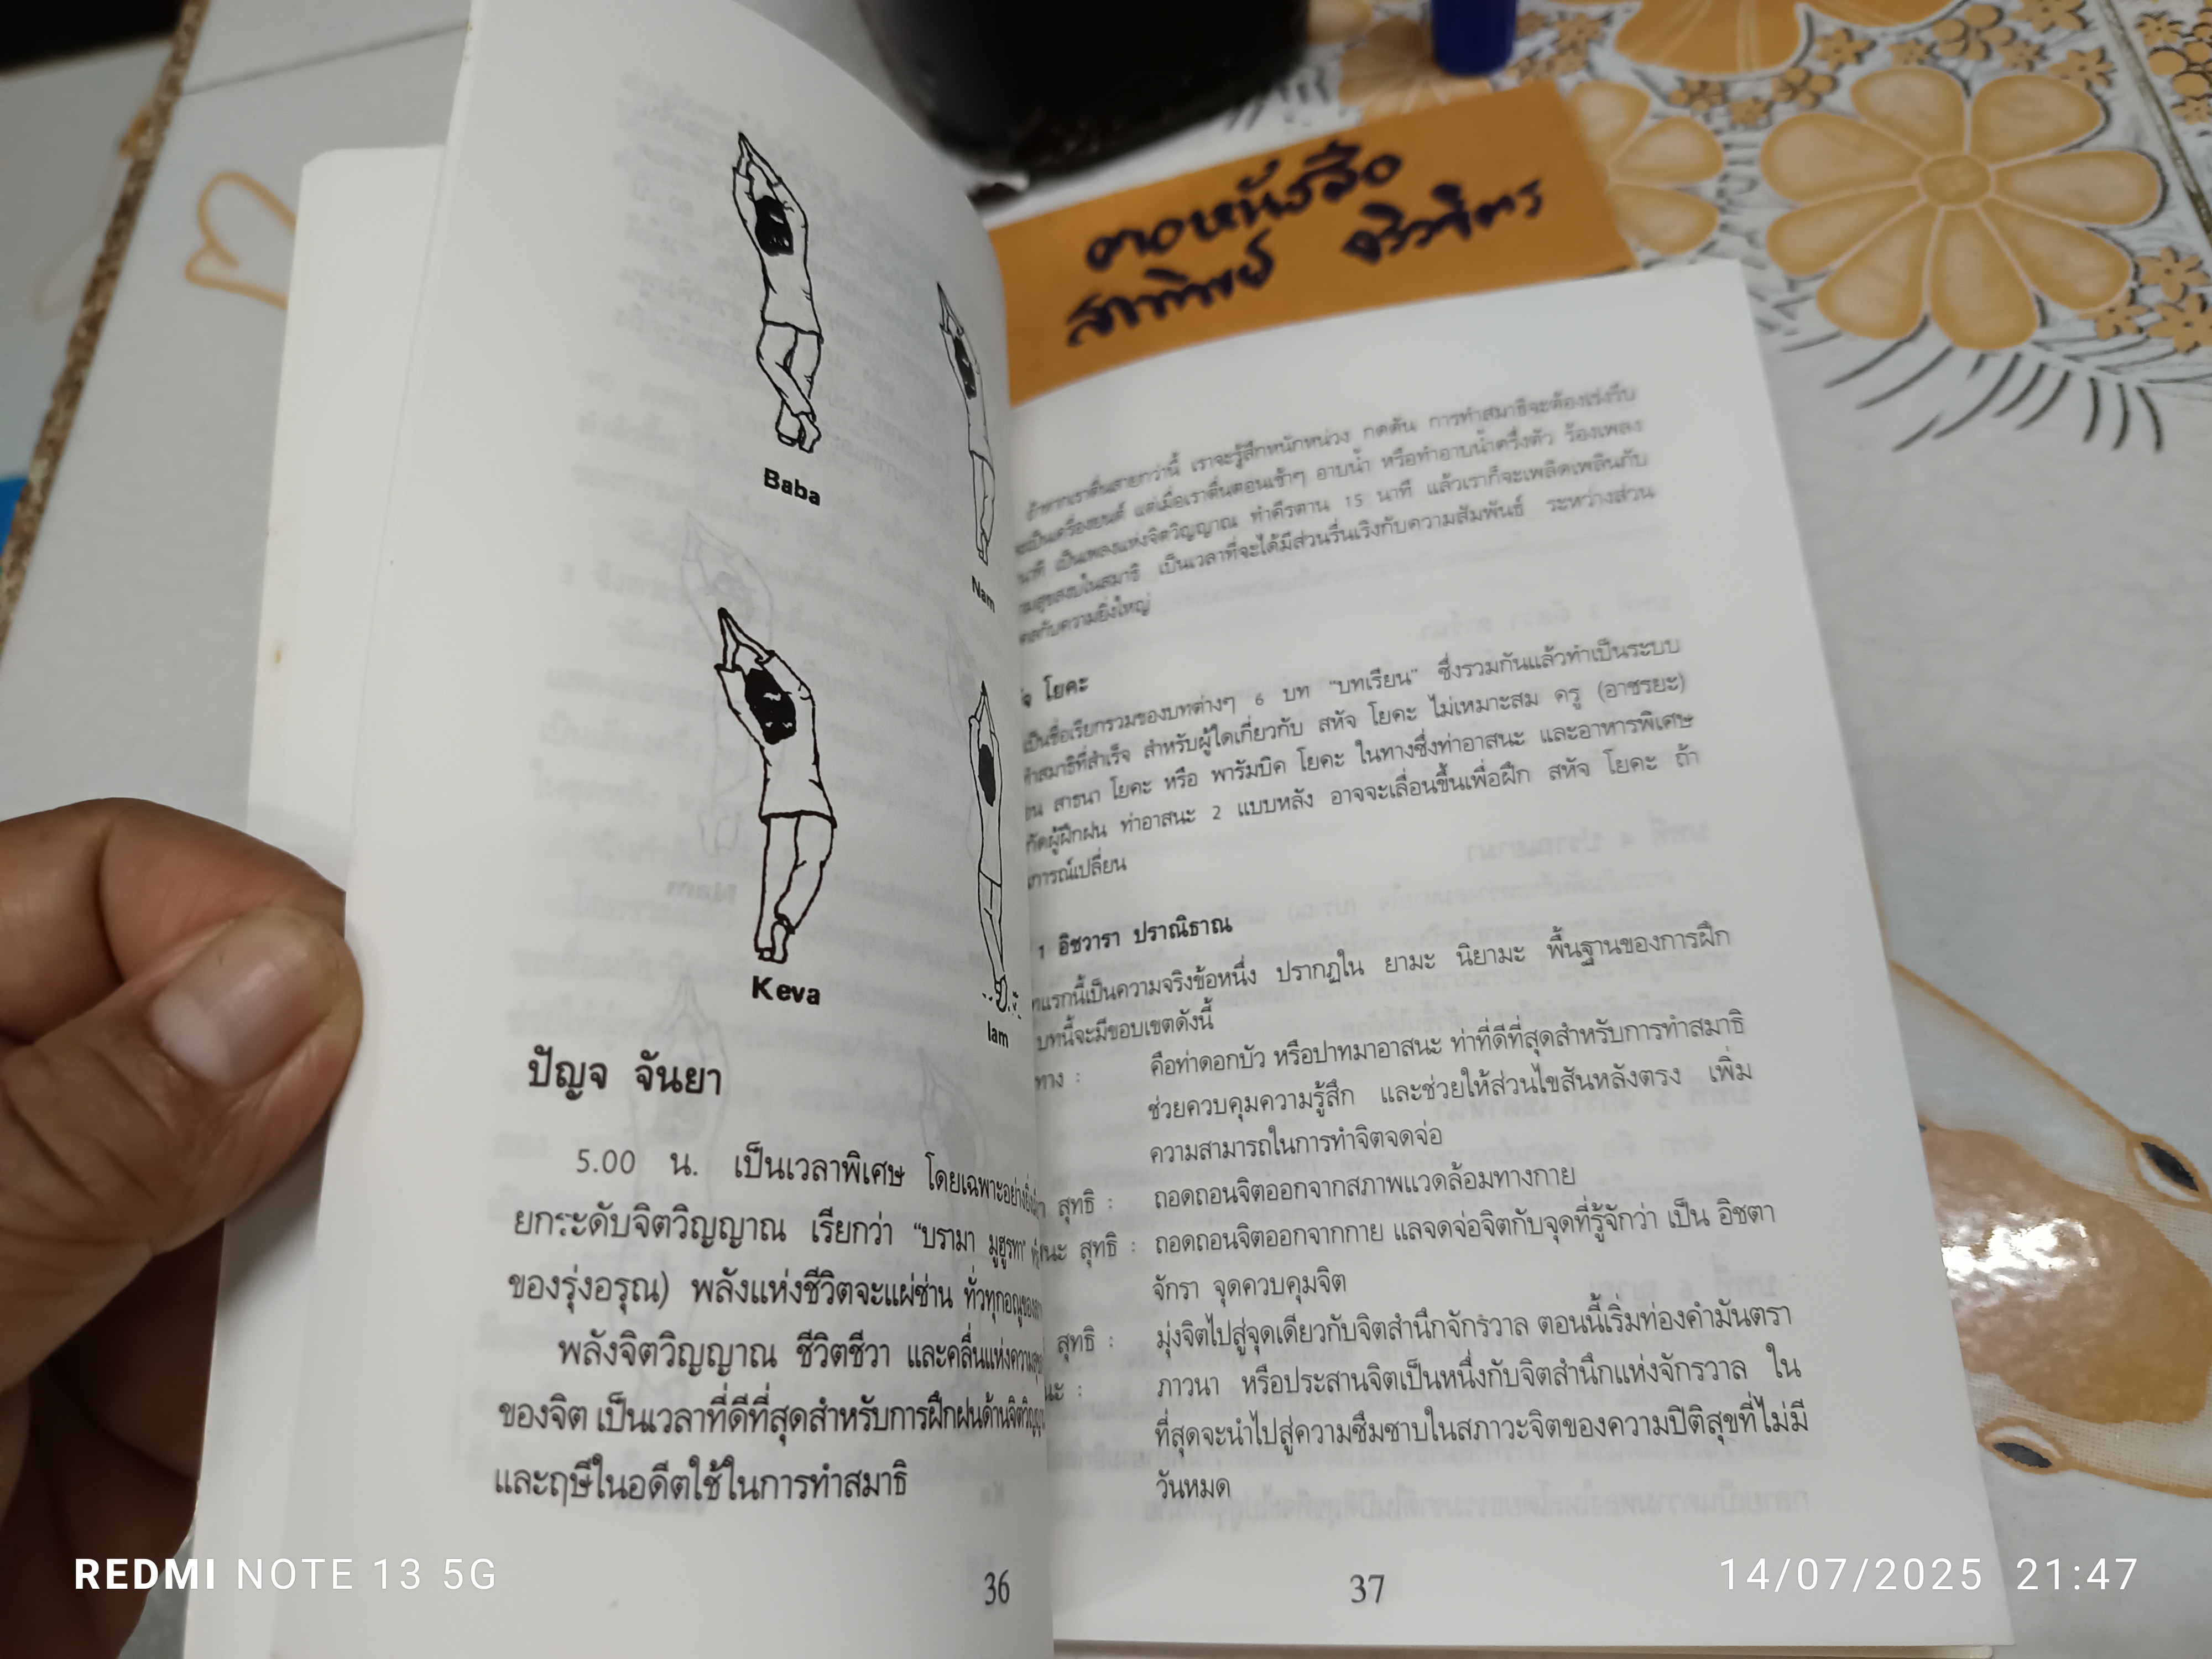 Baba
Nam
Keva
Iam
ปัญจ จันยา
5.00 น. เป็นเวลาพิเศษ โดยเฉพาะอย่างยิ่ง
ยกระดับจิตวิญญาณ เรียกว่า “บรามา มูฮูรทา”
ของรุ่งอรุณ) พลังแห่งชีวิตจะแผ่ซ่าน ทั่วทุกอณูของ
พลังจิตวิญญาณ ชีวิตชีวา และคลื่นแห่งความสุข
ของจิต เป็นเวลาที่ดีที่สุดสำหรับการฝึกฝนด้าน
และฤษีในอดีตใช้ในการทำสมาธิ
36
ตอหนังสือ
ถ้าหากเราตื่นสายกว่านี้ เราจะรู้สึกหนักหน่วง กดดัน การทำสมาธิจะต้องเร่งรีบ
จะเป็นเครื่องยนต์ แต่เมื่อเราตื่นตอนเช้าๆ อาบน้ำ หรือทำอาบน้ำครึ่งตัว ร้องเพลง
นาที เป็นเพลงแห่งจิตวิญญาณ ทำคีรตาน 15 นาที แล้วเราก็จะเพลิดเพลินกับ
ความสุขสงบในสมาธิ เป็นเวลาที่จะได้มีส่วนรื่นเริงกับความสัมพันธ์ ระหว่างส่วน
กับความยิ่งใหญ่
จ โยคะ
เป็นชื่อเรียกรวมของบทต่างๆ 6 บท “บทเรียน” ซึ่งรวมกันแล้วทำเป็นระบบ
ทำสมาธิที่สำเร็จ สำหรับผู้ใดเกี่ยวกับ สหัจ โยคะ ไม่เหมาะสม ครู (อาชรยะ)
สาธนา โยคะ หรือ พารัมบิค โยคะ ในทางซึ่งท่าอาสนะ และอาหารพิเศษ
ผู้ฝึกฝน ท่าอาสนะ 2 แบบหลัง อาจจะเลื่อนขึ้นเพื่อฝึก สหัจ โยคะ ถ้า
การณ์เปลี่ยน
1 อิชวารา ปราณิธาณ
แรกนี้เป็นความจริงข้อหนึ่ง ปรากฏใน ยามะ นิยามะ พื้นฐานของการฝึก
บทนี้จะมีขอบเขตดังนี้
ทาง : คือท่าดอกบัว หรือปาทมาอาสนะ ท่าที่ดีที่สุดสำหรับการทำสมาธิ
ช่วยควบคุมความรู้สึก และช่วยให้ส่วนไขสันหลังตรง เพิ่ม
ความสามารถในการทำจิตจดจ่อ
สุทธิ : ถอดถอนจิตออกจากสภาพแวดล้อมทางกาย
นะ สุทธิ : ถอดถอนจิตออกจากกาย แลจดจ่อจิตกับจุดที่รู้จักว่า เป็น อิชตา
จักรา จุดควบคุมจิต
สุทธิ : มุ่งจิตไปสู่จุดเดียวกับจิตสำนึกจักรวาล ตอนนี้เริ่มท่องคำมันตรา
นะ : ภาวนา หรือประสานจิตเป็นหนึ่งกับจิตสำนึกแห่งจักรวาล ใน
ที่สุดจะนำไปสู่ความซึมซาบในสภาวะจิตของความปิติสุขที่ไม่มี
วันหมด
37
REDMI NOTE 13 5G
14/07/2025 21:47